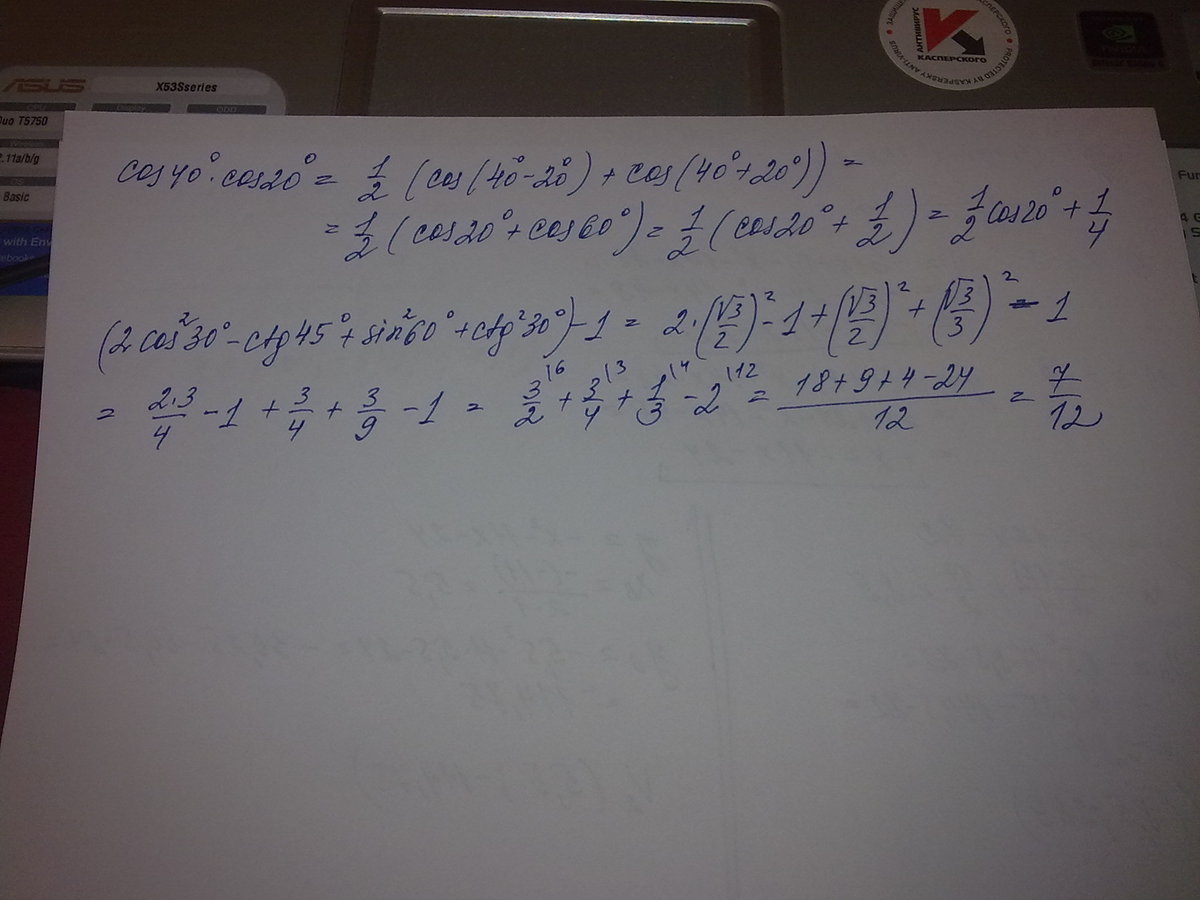 ASUS
X53Sseries
Duo T5750
2.11a/b/g
Basic
with
ЗАЩИЩЕНО
АНТИВИРУС
КАСПЕРСКОГО
PROTECTED BY KASPERSKY ANTI-VIRUS
cos40°·cos20° = 1/2 (cos(40°-20°) + cos(40°+20°)) =
= 1/2 (cos20° + cos60°) = 1/2 (cos20° + 1/2) = 1/2 cos20° + 1/4
(2cos²30° - ctg45° + sin²60° + ctg²30°) - 1 = 2·(√3/2)² - 1 + (√3/2)² + (√3/3)² - 1
= 2·3/4 - 1 + 3/4 + 3/9 - 1 = 3/2\6 + 3/4\3 + 1/3\4 - 2\12 = (18+9+4-24)/12 = 7/12